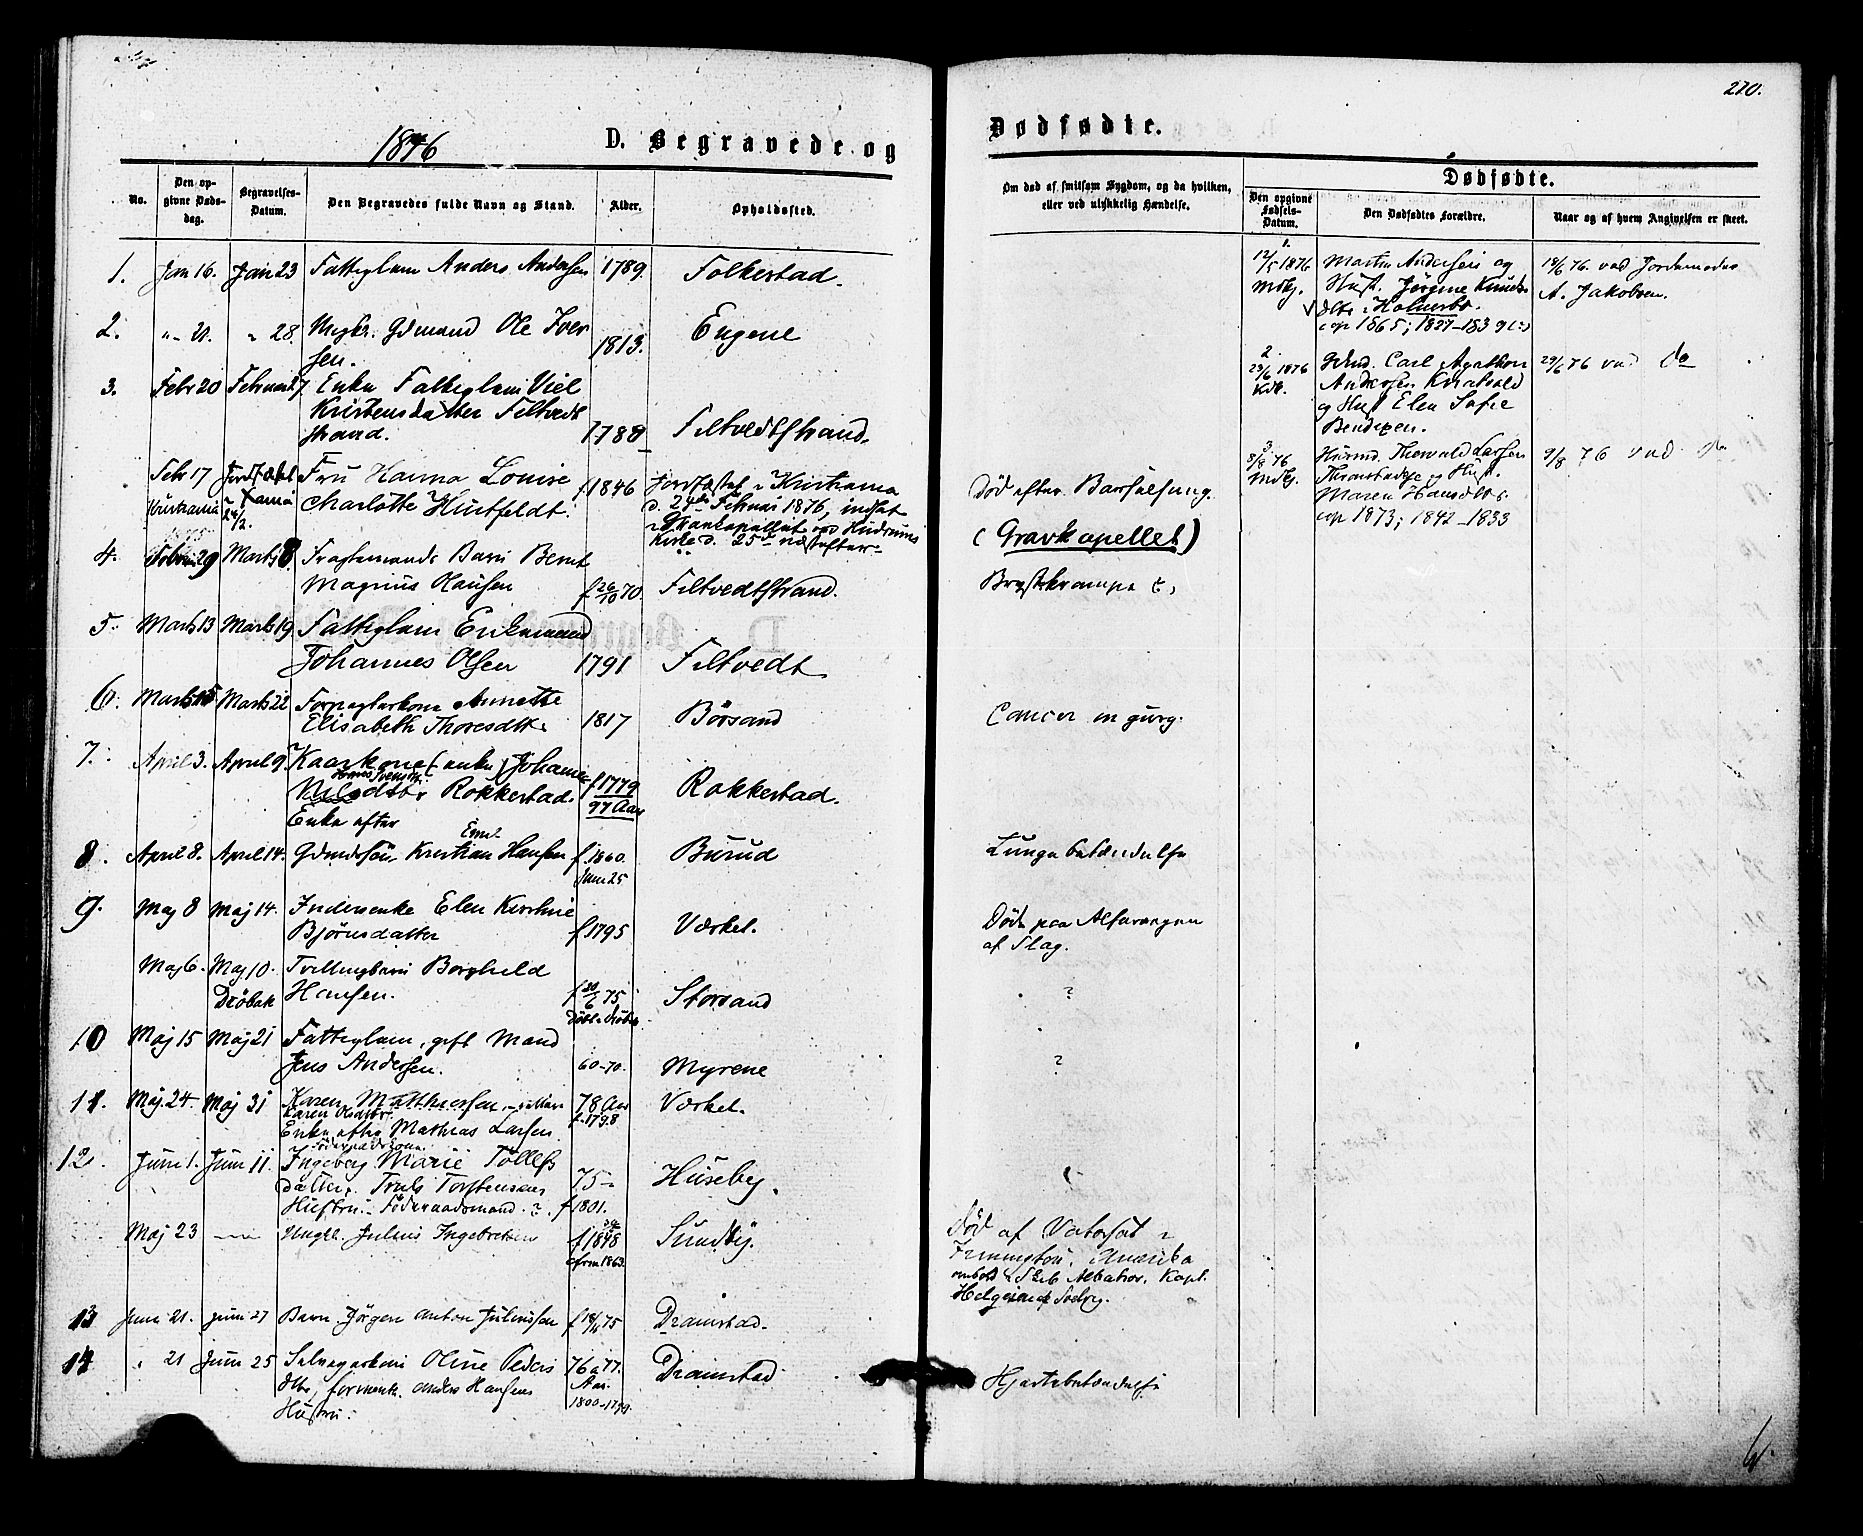 210.
1876
D. Begravede og
Dødfødte.
No.
Den op-
givne Døds-
dag.
Begravelses-
Datum.
Den Begravedes fulde Navn og Stand.
Alder.
Opholdssted.
Om død af smitsom Sygdom, og da hvilken,
eller ved ulykkelig Hændelse.
Dødfødte.
Den opgivne
Fødsels-
Datum.
Den Dødfødtes Forældre.
Naar og af hvem Angivelsen er skeet.
1. Jan 16. Jan 23 Fattiglem Anders Andersen 1789. Folkestad.
2. " 21. " 28. Ungkr. Gdmand Ole Iver
sen. 1813. Engene
3. Febr 20 Februar 27. Enke Fattiglem Siel
Kristensdatter Filtvedt
strand. 1788 Filtvedtstrand.
Febr 17 Jordfæstet Fru Hanna Louise
Kristiania 24/2. Charlotte Huitfeldt. f 1846 Jordfæstet i Kristiania
d. 24de Februar 1876, indsat
i Gravkapellet ved Hudrums
Kirke d. 25de næstefter
Død efter Barselseng.
(Gravkapellet)
4. Februar 29 Marts 8. Fragtemands Barn Bernt
Magnus Hansen f 26/10 70. Filtvedtstrand. Brystkrampe
5. Marts 13 Marts 19 Fattiglem Enkemand
Johannes Olsen 1791 Filtvedt
6. Marts 15 Marts 22 Forpagterkone Annette
Elisabeth Thoresdtr. 1817 Børsand Cancer in gurg.
7. April 3. April 9. Kaarkone (enke) Johanne
Nilsdtr Rokkestad. f 1779 Rokkestad.
Enke efter 97 Aar
8. April 8. April 14. Gdmdsøn Kristian Hansen f 1860. Burud Lungebetændelse
Juni 25
9. Maj 8 Maj 14. Inderstenke Elen Kirstine
Bjørnsdatter f 1795 Værket. Død paa Alfarvegen
af Slag.
Maj 6. Maj 10. Tvillingbarn Borghild
Drøbak Hansen. f 30/6 75 Storsand ?
10 Maj 15 Maj 21 Fattiglem, gift Mand
Jens Andersen. 60-70. Myrene ?
11. Maj 24. Maj 31 Karen Matthiesen 78 Aar Værket.
Karen Olsdtr. f. 1798
Enke efter Mathias Larsen
12. Juni 1. Juni 11. Ingeborg Marie Tollefs
datter, Truls Torstensens 75 Huseby.
Hustru - Føderaadsmand. f 1801.
Maj 23 Ungk. Julius Ingebretsen f 1848 Sundby.
cfrm 1863.
Død af Vatersot i
Amerika
ombord i Skib Albatros. Kapt.
Helgesen
13 Juni 21. Juni 27 Barn Jørgen Anton Juliussen f 18/11 75 Dramstad.
14 " 21 Juni 25 Selveierkone Oline Peders
dtr, Anders Hansens 76 a 77. Dramstad Hjertebetændelse
Hustru. Aar.
1800-1799.
1.
12/5 1876 Martin Andersen og 18/6 76. ved Jordemoder
Mdkj. Hust. Jørgine Knuds A. Jakobsen.
dtr Holmsbo.
cop 1865; 1837-1839
2.
23/6 1876 Gdmd. Carl Agathon 29/6 76 ved do
Kdk. Andersen
og Hust Elen Sofie
Bendixen.
3
8/8 76 Husmd. Thorvald Larsen 9/8 76 ved do
Mdkj. og Hust.
Maren Hansdtr.
cop 1873; 1842-1833